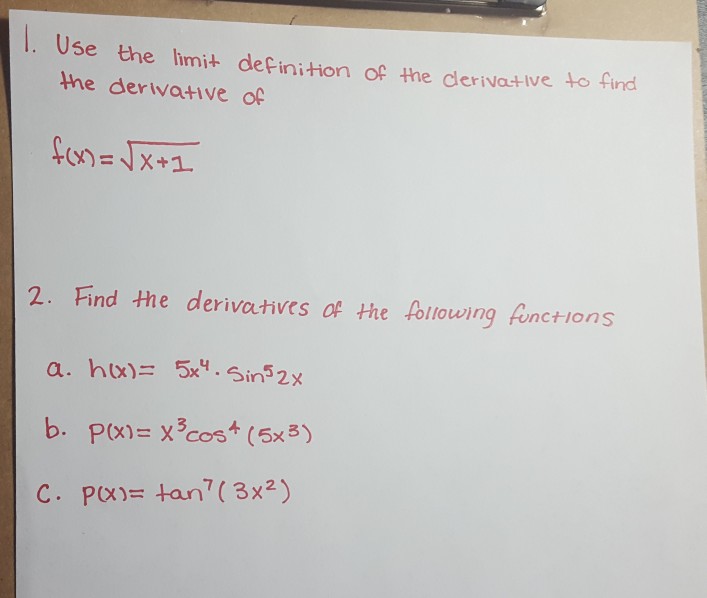 1. Use the limit definition of the derivative to find
the derivative of
f(x) = √x+1
2. Find the derivatives of the following functions
a. h(x) = 5x⁴ · Sin⁵2x
b. P(x) = x³cos⁴(5x³)
C. P(x) = tan⁷(3x²)